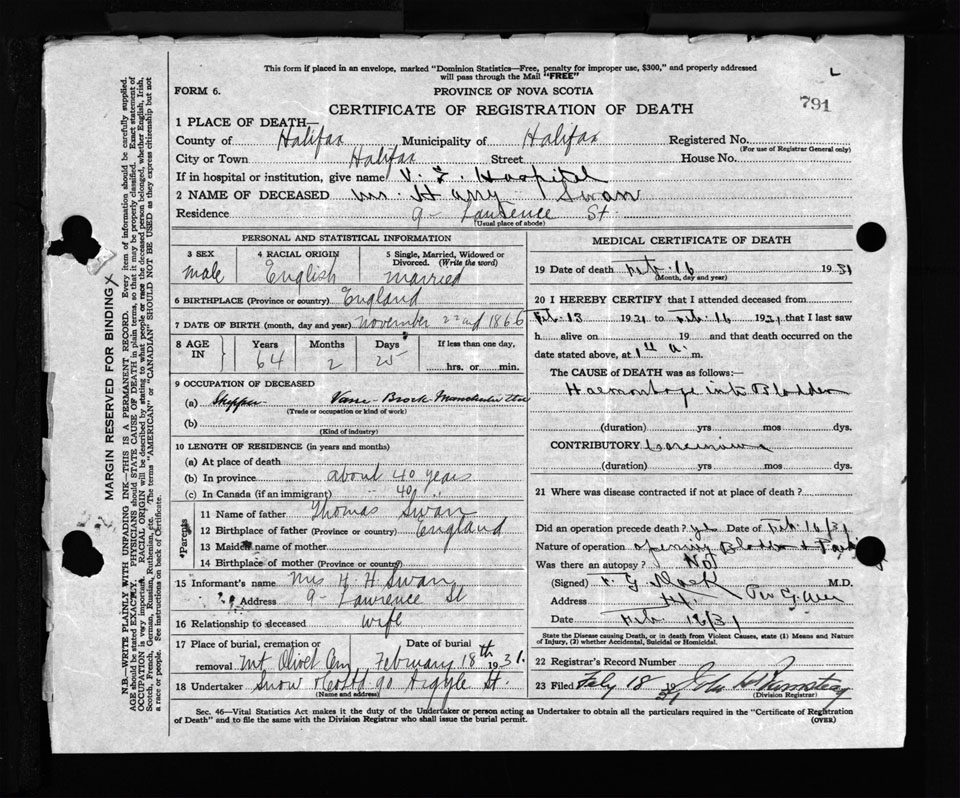 This form if placed in an envelope, marked "Dominion Statistics—Free, penalty for improper use, $300," and properly addressed
will pass through the Mail "FREE"
L
FORM 6.
PROVINCE OF NOVA SCOTIA
791
CERTIFICATE OF REGISTRATION OF DEATH
1 PLACE OF DEATH—
County of Halifax Municipality of Halifax Registered No.
(For use of Registrar General only)
City or Town Halifax Street House No.
If in hospital or institution, give name V. G. Hospital
2 NAME OF DECEASED Mr. Harry Swan
Residence 9 - Lawrence St.
(Usual place of abode)
PERSONAL AND STATISTICAL INFORMATION
3 SEX 4 RACIAL ORIGIN 5 Single, Married, Widowed or
Divorced. (Write the word)
Male English Married
6 BIRTHPLACE (Province or country) England
7 DATE OF BIRTH (month, day and year) November 22nd 1866
8 AGE IN Years Months Days If less than one day,
64 2 25 hrs. or min.
9 OCCUPATION OF DECEASED
(a) Shipper
(Trade or occupation or kind of work)
(b)
(Kind of industry)
10 LENGTH OF RESIDENCE (in years and months)
(a) At place of death
(b) In province about 40 years
(c) In Canada (if an immigrant) 40
*Parents
11 Name of father Thomas Swan
12 Birthplace of father (Province or country) England
13 Maiden name of mother
14 Birthplace of mother (Province or country)
15 Informant's name Mrs H. H Swan
Address 9 - Lawrence St
16 Relationship to deceased wife
17 Place of burial, cremation or Date of burial
removal Mt Olivet Cem, February 18th 1931.
18 Undertaker Snow & Co Ltd 90 Argyle St.
(Name and address)
MEDICAL CERTIFICATE OF DEATH
19 Date of death Feb. 16 1931
(Month, day and year)
20 I HEREBY CERTIFY that I attended deceased from
Feb. 13 1931 to Feb. 16 1931 that I last saw
h alive on 19 and that death occurred on the
date stated above, at a. m.
The CAUSE of DEATH was as follows:
Haemorrhage into Bladder
(duration) yrs mos dys.
CONTRIBUTORY Carcinoma
(duration) yrs mos dys.
21 Where was disease contracted if not at place of death?
Did an operation precede death? yes Date of Feb 16/31
Nature of operation opening Bladder +
Was there an autopsy? No
(Signed) M.D.
Address
Date Feb 16/31
State the Disease causing Death, or in death from Violent Causes, state (1) Means and Nature
of Injury, (2) whether Accidental, Suicidal or Homicidal.
22 Registrar's Record Number
23 Filed Feby 18 John
(Division Registrar)
Sec. 46—Vital Statistics Act makes it the duty of the Undertaker or person acting as Undertaker to obtain all the particulars required in the "Certificate of Registration
of Death" and to file the same with the Division Registrar who shall issue the burial permit.
(OVER)
MARGIN RESERVED FOR BINDING X
N.B.—WRITE PLAINLY WITH UNFADING INK—THIS IS A PERMANENT RECORD. Every item of information should be carefully supplied.
AGE should be stated EXACTLY. PHYSICIANS should STATE CAUSE OF DEATH in plain terms, so that it may be properly classified. Exact statement of
OCCUPATION is very important. RACIAL ORIGIN will be described by stating to what people or race the deceased person belonged, whether English, Irish,
Scotch, French, German, Russian, Ruthenian, etc. The terms "AMERICAN" or "CANADIAN" SHOULD NOT BE USED as they express citizenship but not
a race or people. See instructions on back of Certificate.